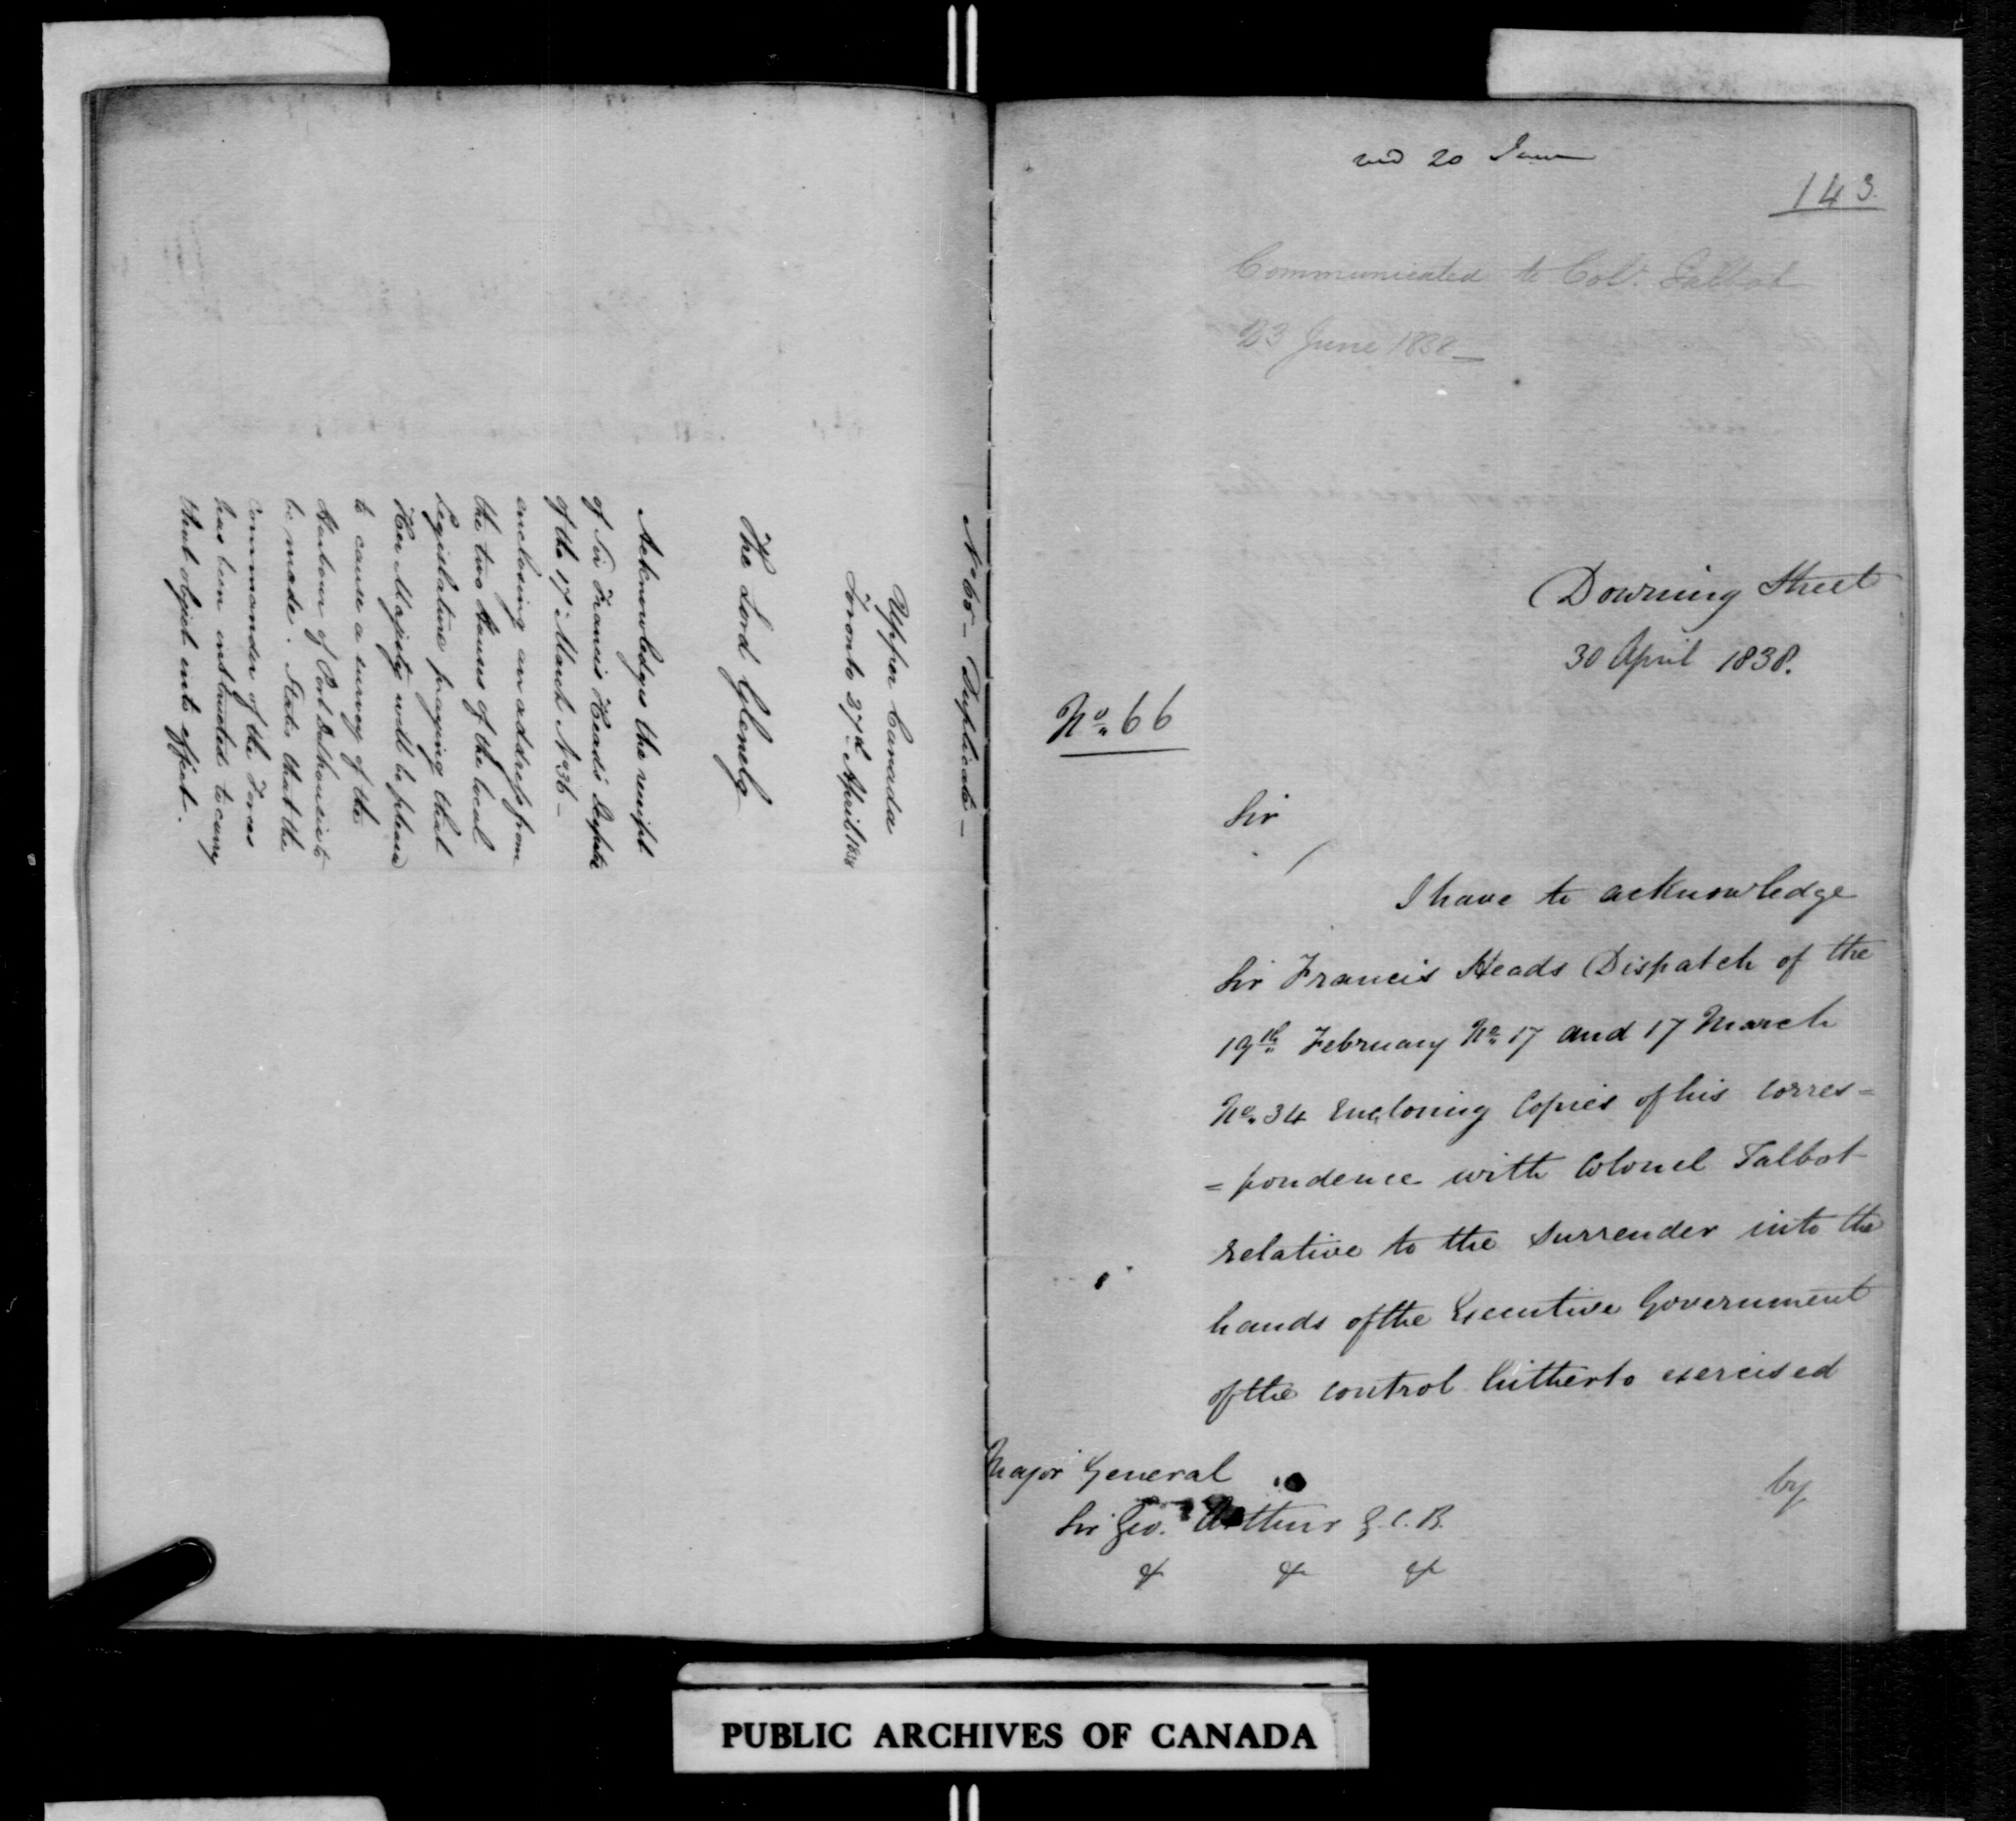 No. 65 - Duplicate -
Upper Canada
Toronto 27th April 1838
The Lord Glenelg
Acknowledges the receipt
of Sir Francis Head's Despatch
of the 17th March No. 36 -
enclosing an address from
the two Houses of the local
Legislature praying that
Her Majesty will be pleased
to cause a survey of the
Harbour of Port Dalhousie to
be made. States that the
Commander of the Forces
has been instructed to carry
that object into effect.
recd 20 June
143.
Communicated to Col. Talbot
23 June 1838 -
Downing Street
30 April 1838.
No. 66
Sir
I have to acknowledge
Sir Francis Heads Dispatch of the
19th February No. 17 and 17 March
No. 34 Enclosing Copies of his corres=
=pondence with Colonel Talbot
relative to the surrender into the
hands of the Executive Government
of the control hitherto exercised
by
Major General
Sir Geo. Arthur G.C.B.
& & &
PUBLIC ARCHIVES OF CANADA